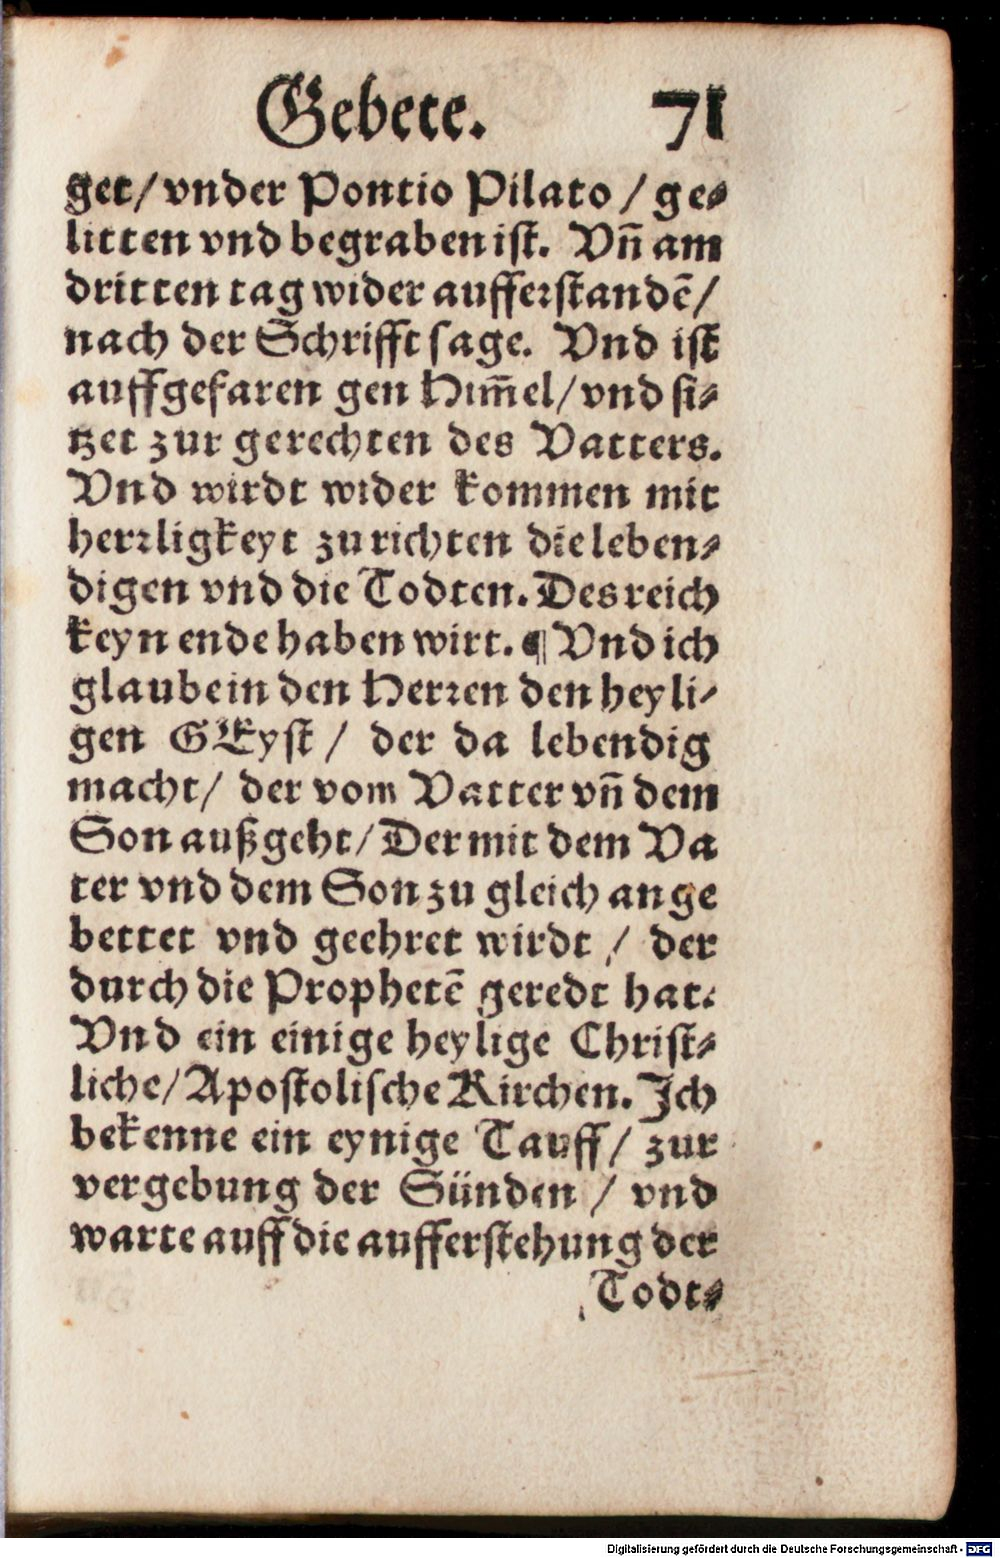 Gebete. 71
get/ vnder Pontio Pilato / ge⸗
litten vnd begraben ist. Vn̄ am
dritten tag wider aufferstandē/
nach der Schrifft sage. Vnd ist
auffgefaren gen Him̄el/ vnd si⸗
tzet zur gerechten des Vatters.
Vnd wirdt wider kommen mit
herꝛligkeyt zu richten die leben⸗
digen vnd die Todten. Des reich
keyn ende haben wirt. ¶ Vnd ich
glaube in den Herꝛen den heyli⸗
gen GEyst / der da lebendig
macht/ der vom Vatter vn̄ dem
Son außgeht/ Der mit dem Va
ter vnd dem Son zu gleich ange
bettet vnd geehret wirdt / der
durch die Prophetē geredt hat.
Vnd ein einige heylige Christ⸗
liche/ Apostolische Kirchen. Ich
bekenne ein eynige Tauff/ zur
vergebung der Sünden / vnd
warte auff die aufferstehung der
Todt⸗
Digitalisierung gefördert durch die Deutsche Forschungsgemeinschaft - DFG